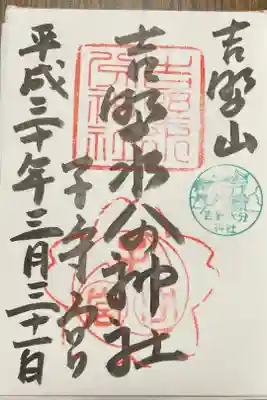 吉野山
吉野水分神社
子守宮
平成三十年三月三十一日